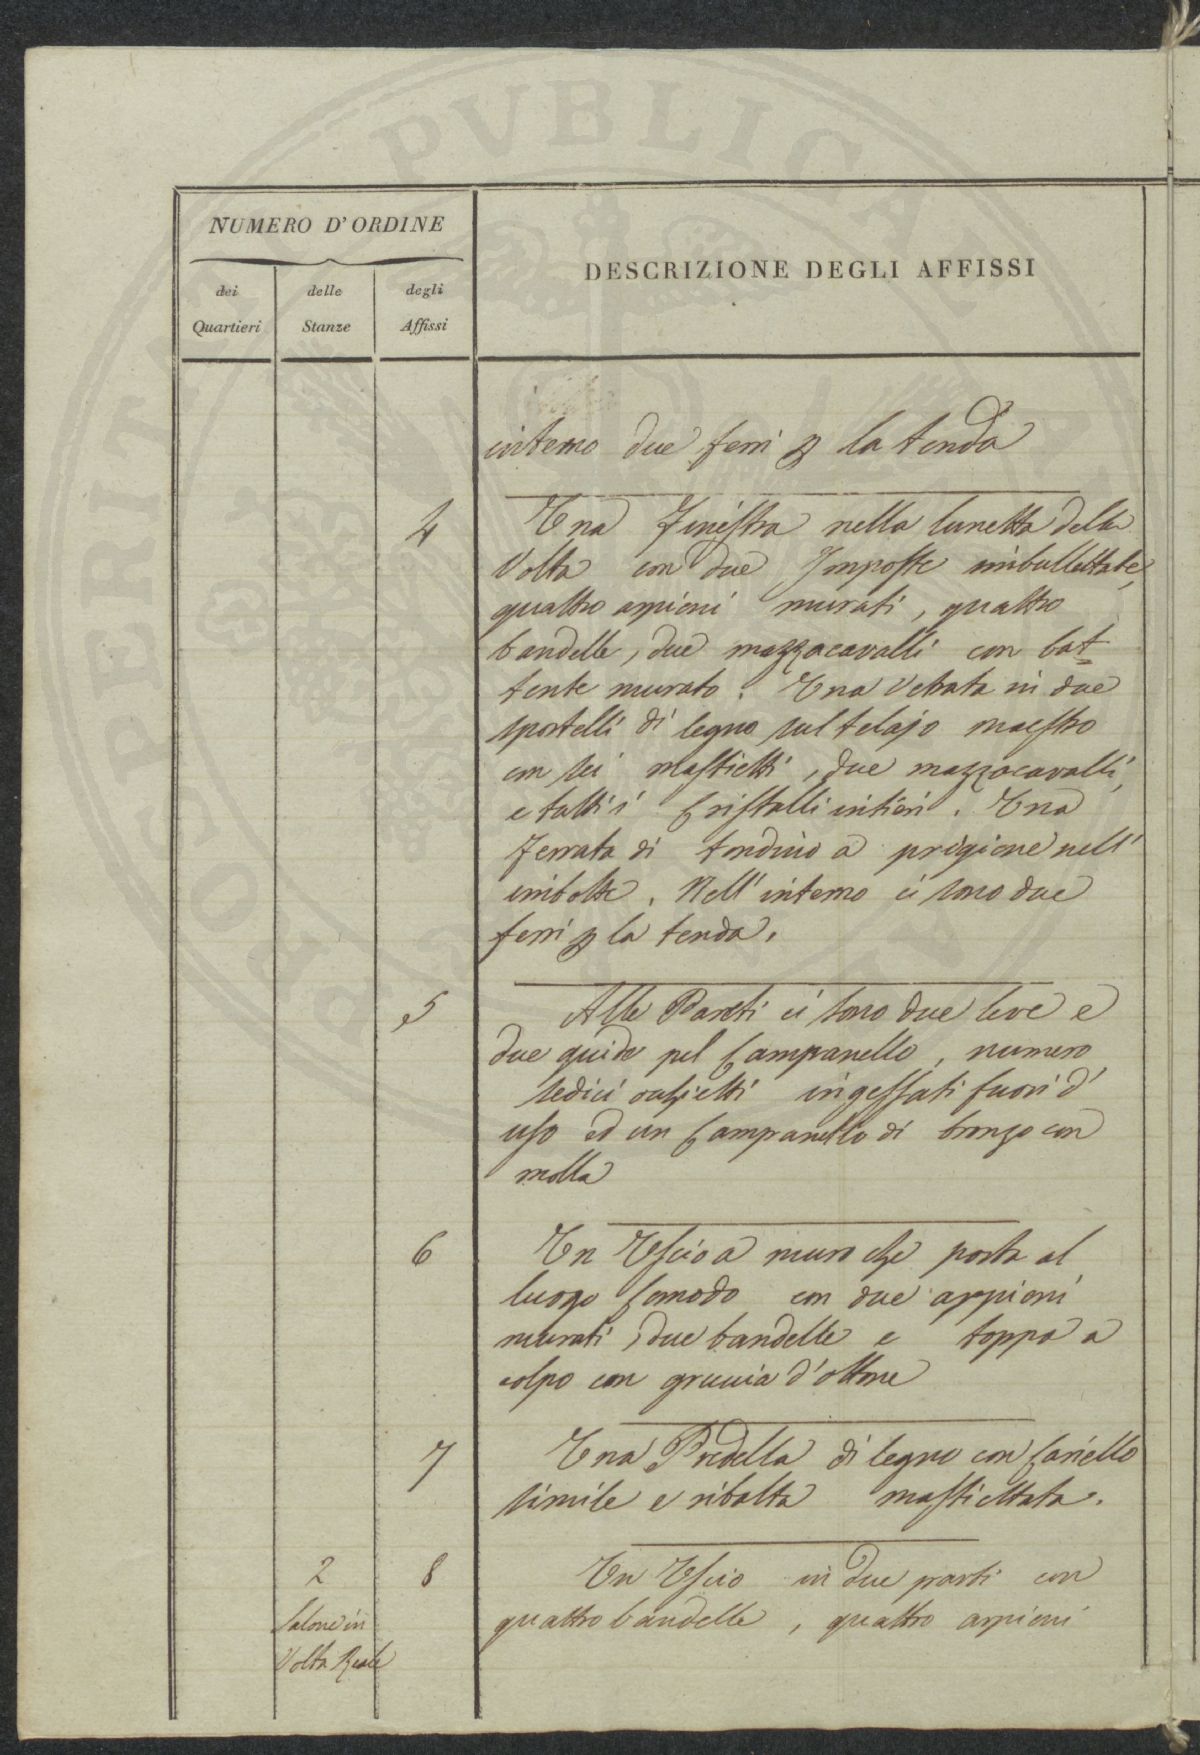 NUMERO D'ORDINE
DESCRIZIONE DEGLI AFFISSI
dei Quartieri
delle Stanze
degli Affissi
interno due ferri p la tenda
4 Una Finestra nella lunetta della
Volta con due Imposte imbullettate,
quattro arpioni murati, quattro
bandelle, due mazzacavalli con bat=
tente murato. Una Vetrata in due
sportelli di legno sul telajo maestro
con sei mastietti, due mazzacavalli,
e tutti i Cristalli intieri. Una
ferrata di tondino a prigione nell'
imbotte. Nell' interno ci sono due
ferri p la tenda.
5 Alle Pareti ci sono due leve e
due guide pel Campanello, numero
sedici oulietti ingessati fuori d'
uso ed un Campanello di bronzo con
molla
6 Un Uscio a muro che porta al
luogo Comodo con due arpioni
murati, due bandelle e toppa a
colpo con gruccia d'ottone
7 Una Predella di legno con Cariello
simile e ribalta mastiettata.
2 8 Un Uscio in due parti con
Salone in quattro bandelle, quattro arpioni
Volta Reale
PUBLICA